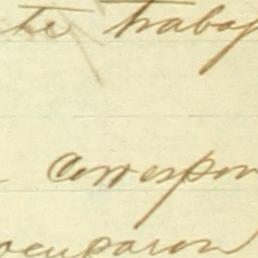 te trabaj
correspon
ocuparon